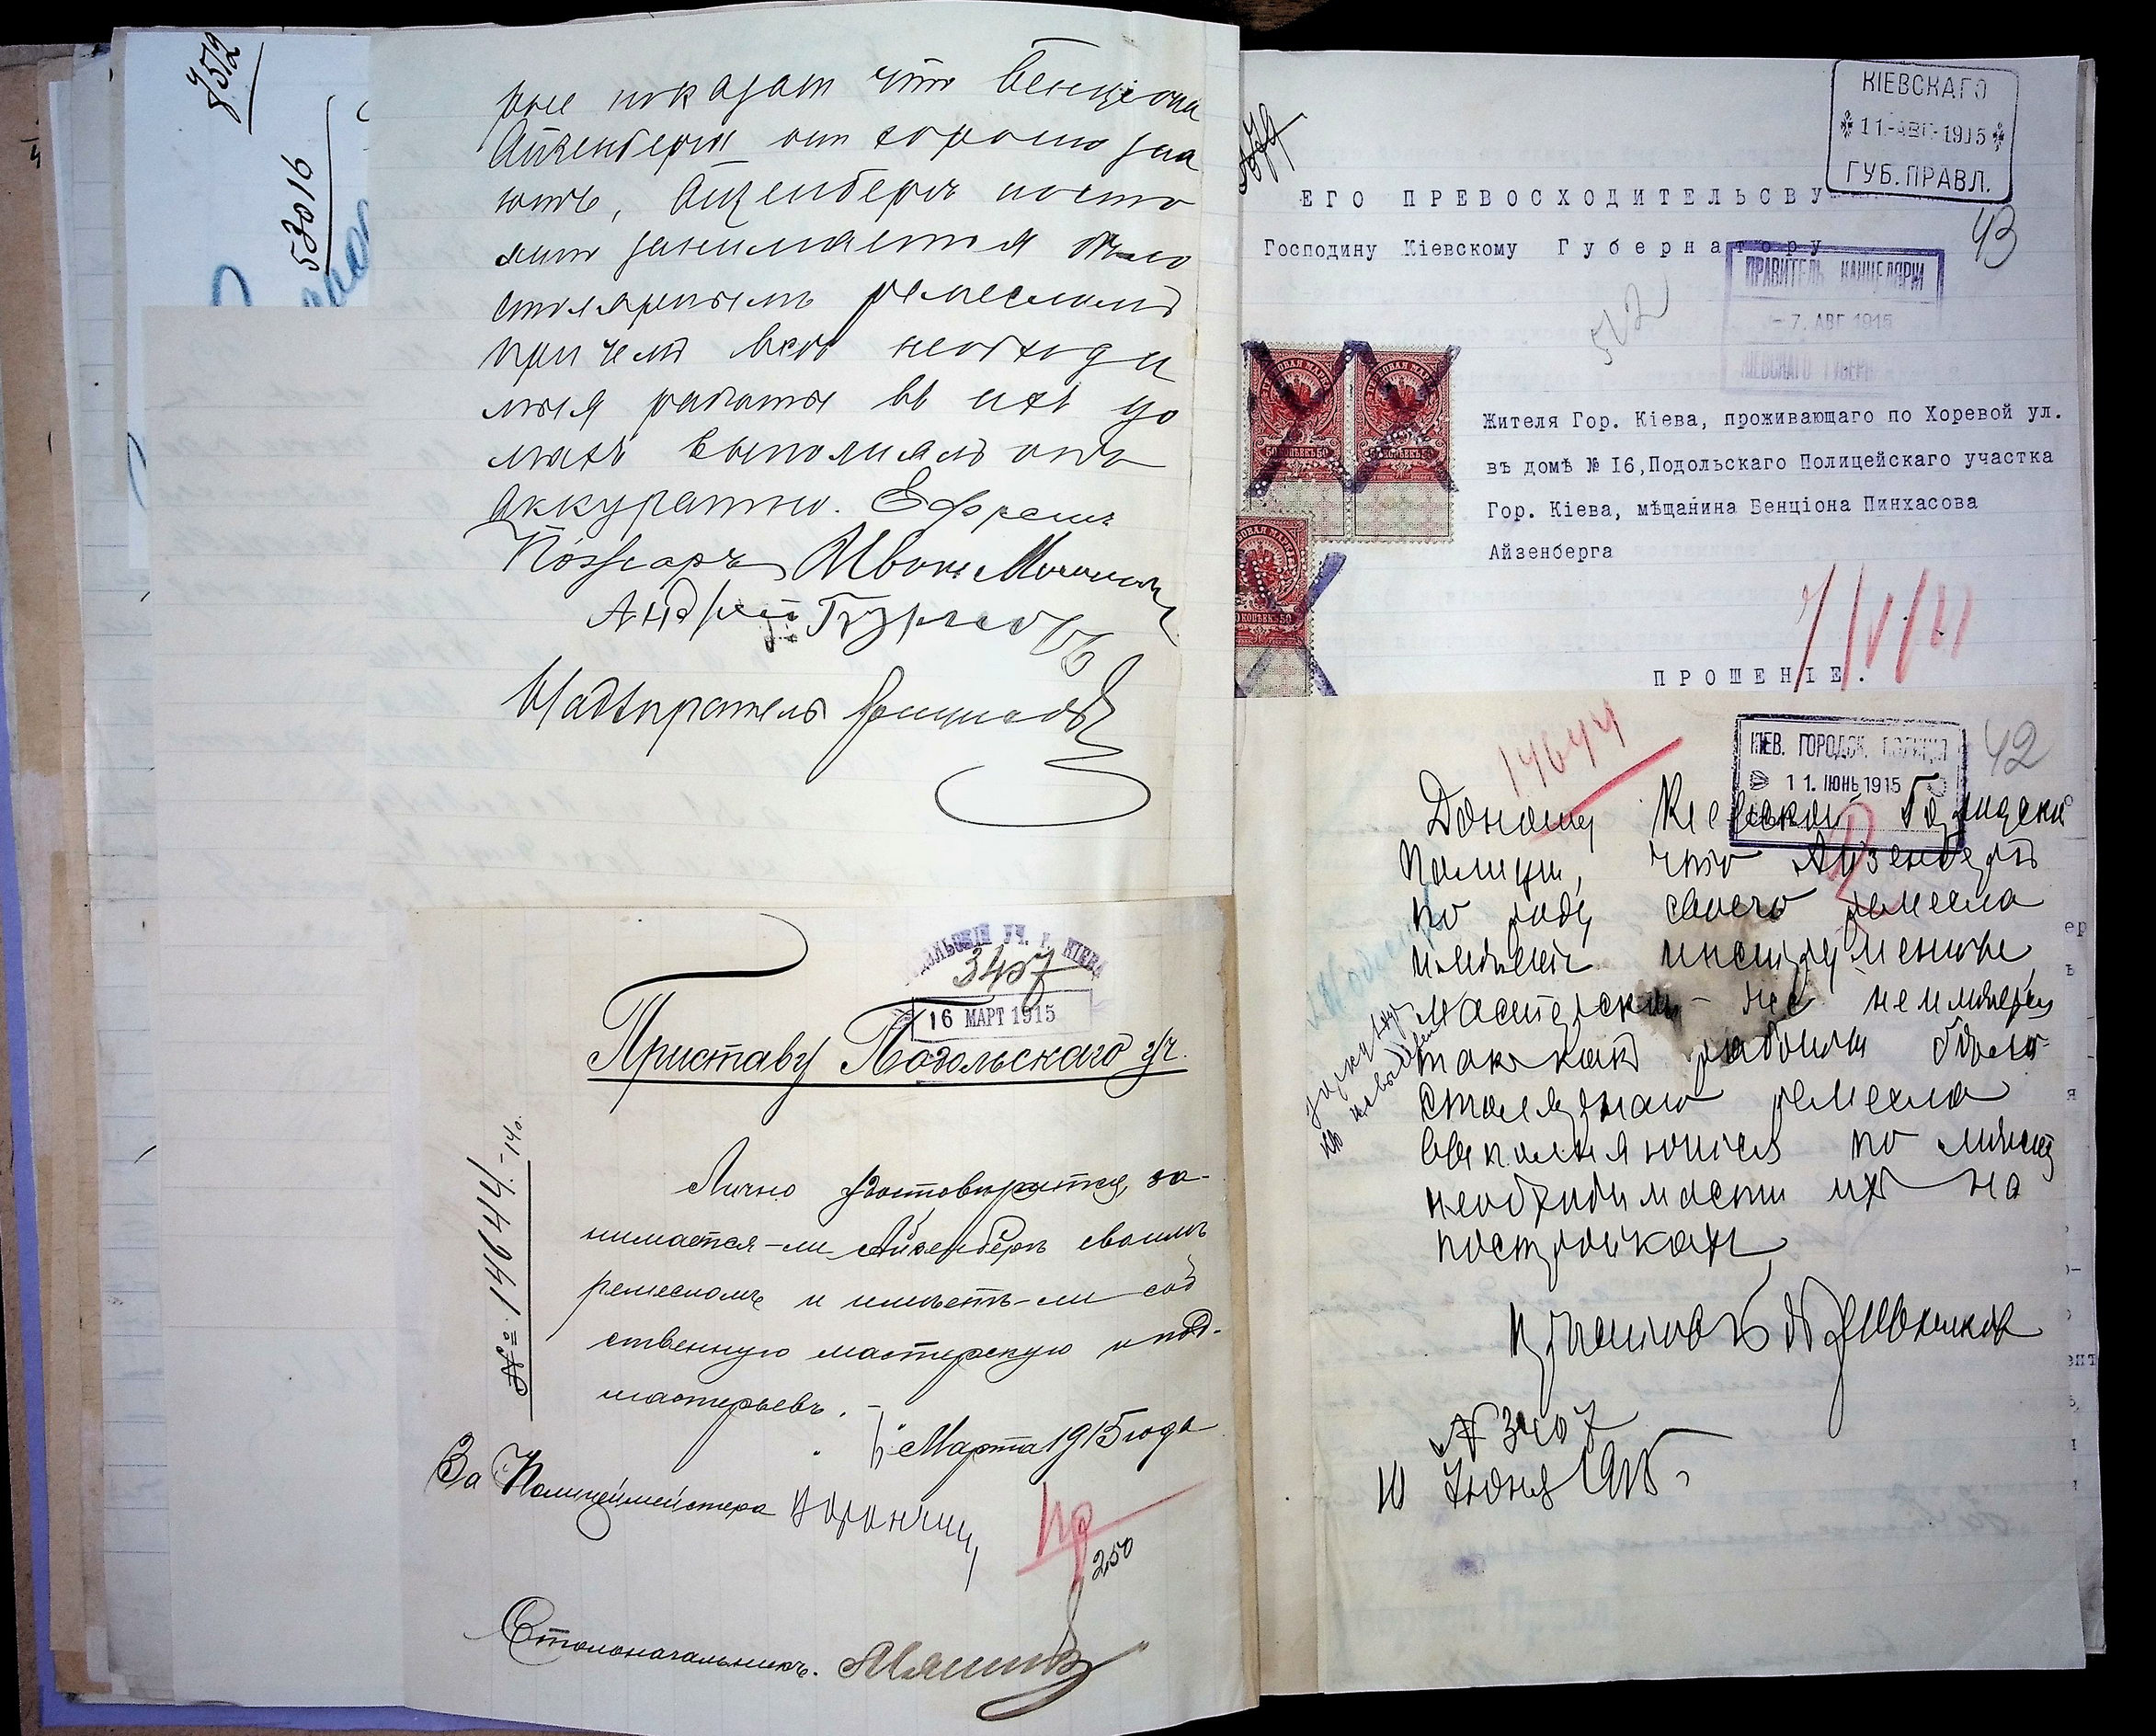 53016
рые показат что Бенциона
Айзенберга они хорошо зна
ютъ, Айзенбергъ посто
янно занимается бѣло
столярнымъ ремесломъ
при чемъ всѣ необходи
мыя работы въ ихъ до
махъ выполнялъ онъ
аккуратно. Ефремъ
Иванъ
Андрей
Надзиратель
ПОДОЛЬСКІЙ УЧ. Г. КІЕВА
3407
16 МАРТ 1915
Приставу Подольскаго уч.
№ 14644.
Лично удостовѣриться, за-
нимается-ли Айзенбергъ своимъ
ремесломъ и имѣетъ-ли соб
ственную мастерскую и под-
мастерьевъ.
Марта 1915 года
За Полицеймейстера
250
Столоначальникъ.
КІЕВСКАГО
11-АВГ-1915
ГУБ. ПРАВЛ.
ЕГО ПРЕВОСХОДИТЕЛЬСВУ
43
Господину Кіевскому Губернатору
ПРАВИТЕЛЬ КАНЦЕЛЯРІИ
7. АВГ 1915
КІЕВСКАГО ГУБЕРН
512
Жителя Гор. Кіева, проживающаго по Хоревой ул.
въ домѣ № I6,Подольскаго Полицейскаго участка
Гор. Кіева, мѣщанина Бенціона Пинхасова
Айзенберга
ПРОШЕНІЕ.
14644
КІЕВ. ГОРОДСК. ПОЛИЦІЯ
11. ИЮНЬ 1915
42
Доношу Кіевской Городской
Полиціи, что Айзенбергъ
по роду своего ремесла
имѣетъ инструменты,
мастерской - же не имѣетъ
такъ какъ работы бѣло-
столярнаго ремесла
выполняются по мѣсту
необходимости ихъ на
постройкахъ
Приставъ
№ 3407
10 Июня 1915 г.